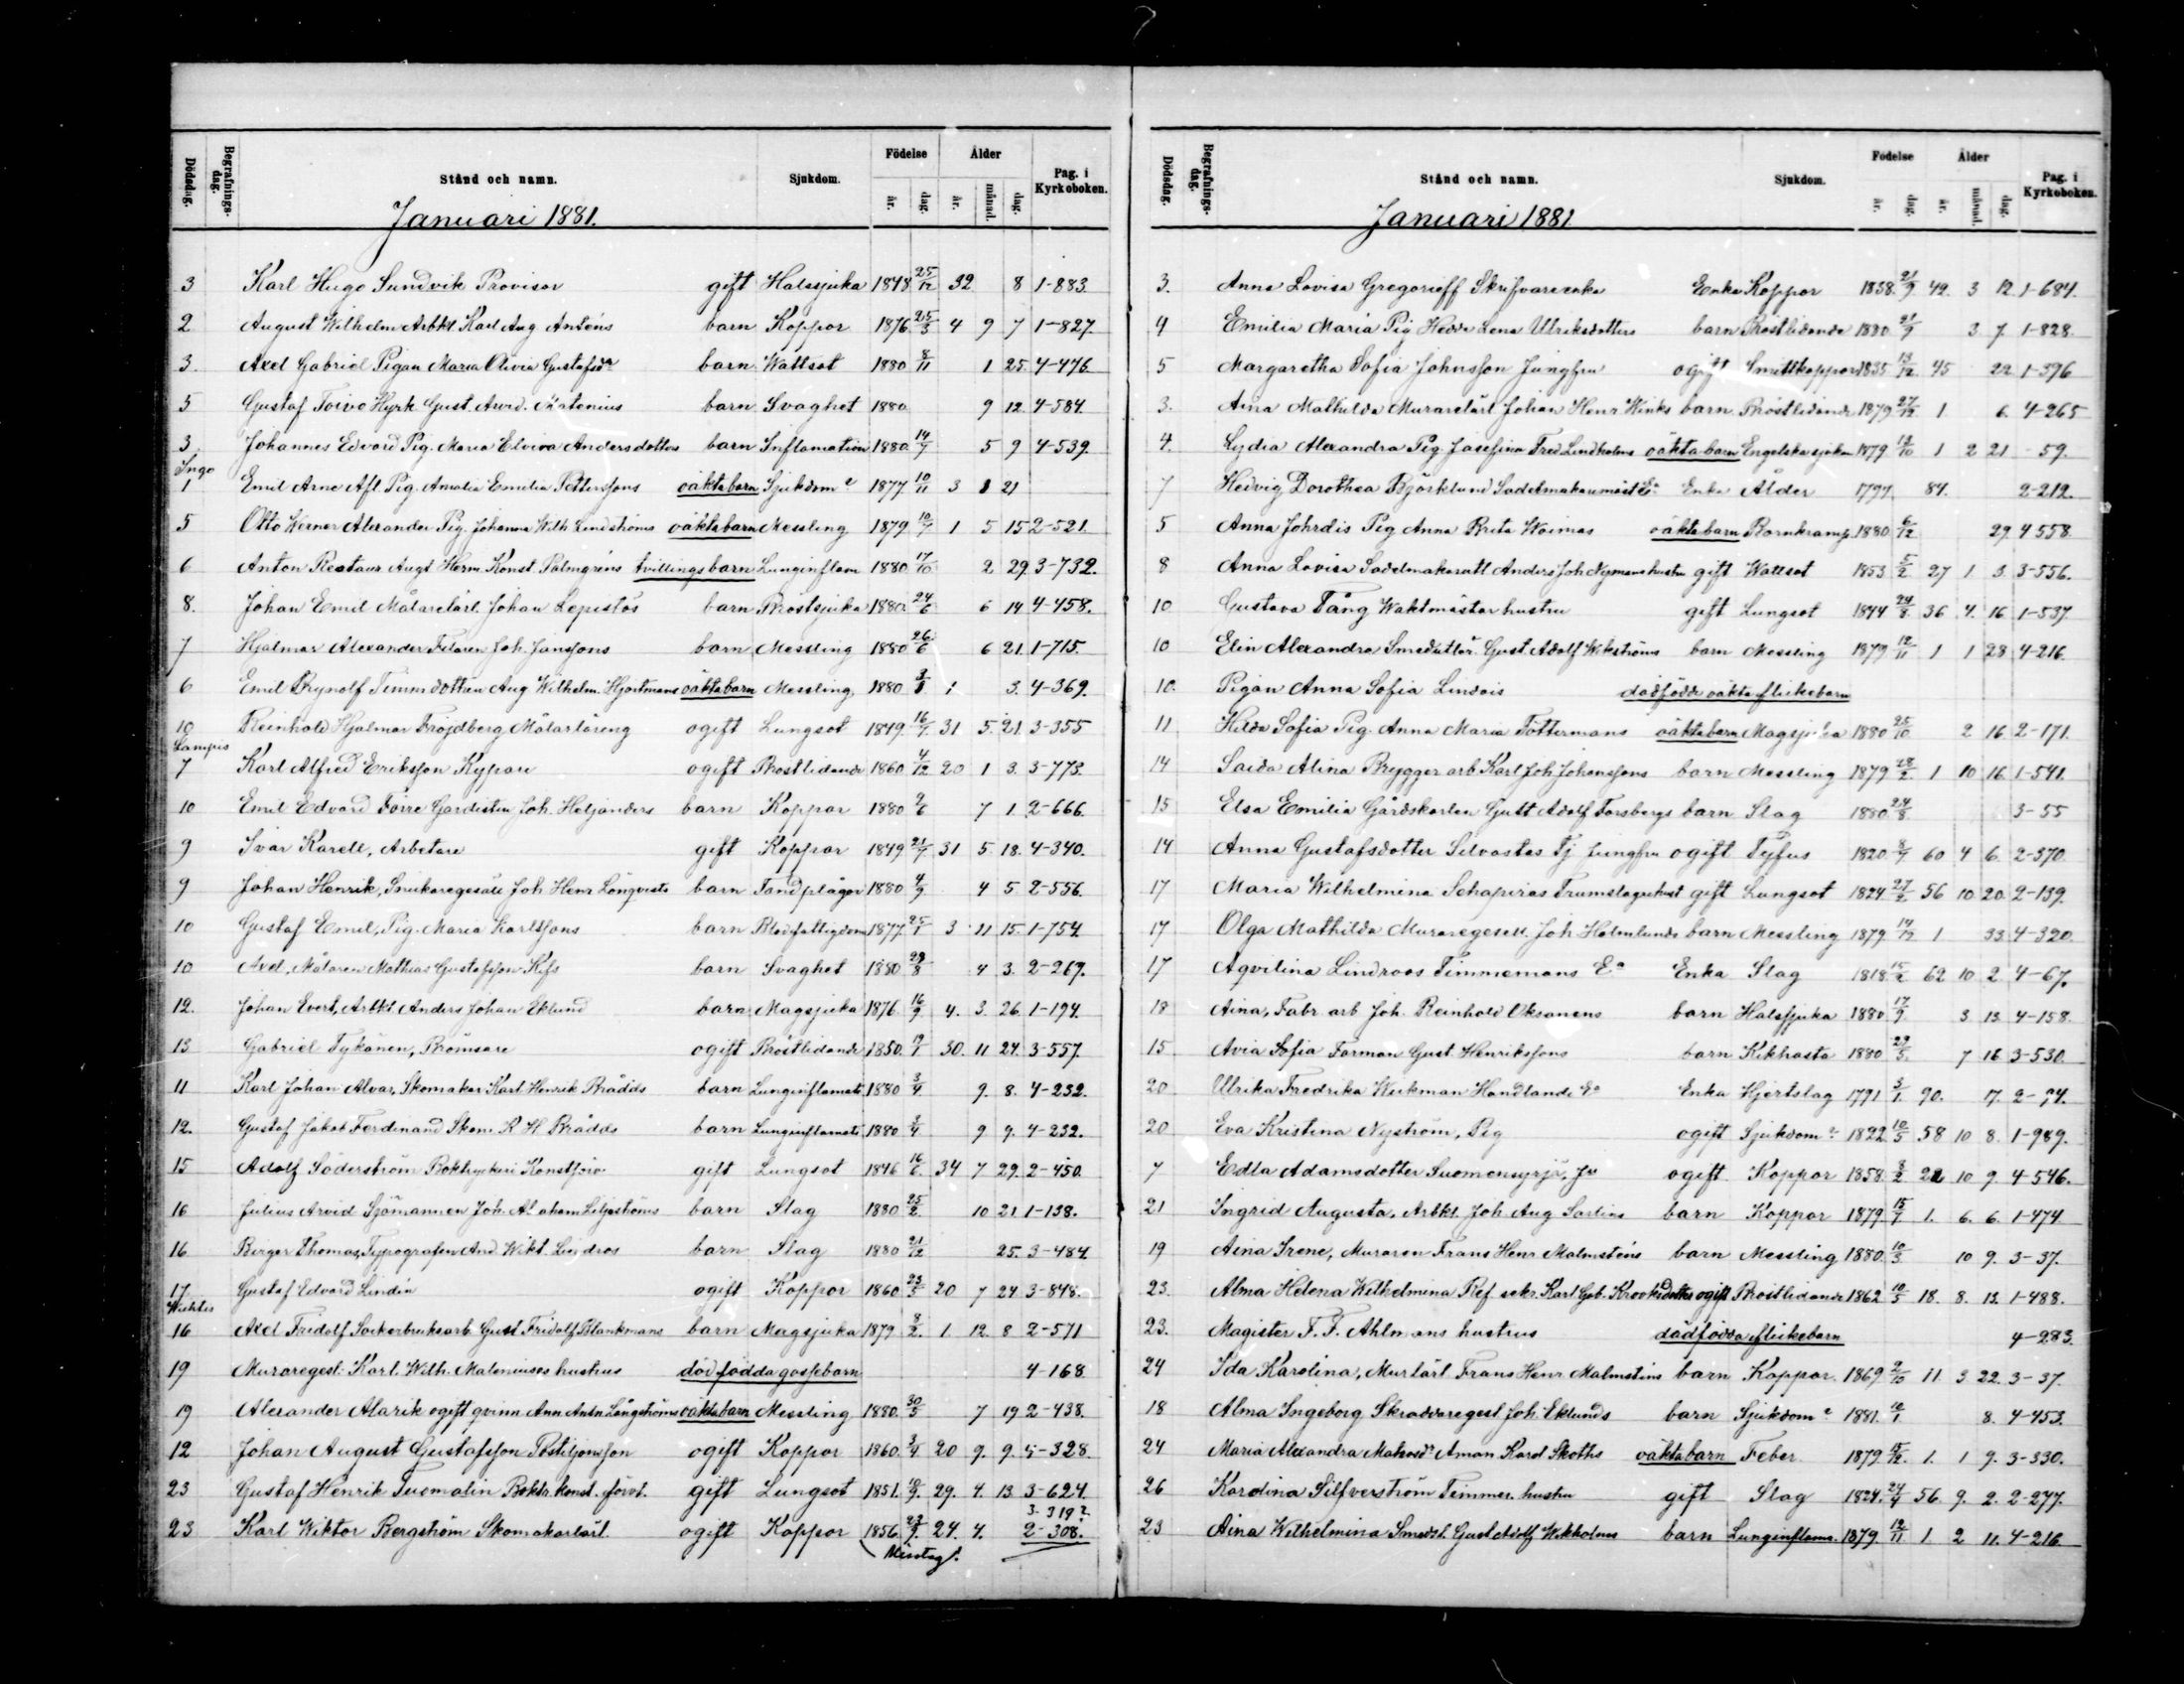 Dödsdag. Begrafningsdag. Stånd och namn. Sjukdom. Födelse år. dag. Ålder år. månad. dag. Pag. i Kyrkoboken.
Januari 1881.
3 Karl Hugo Sundvik Provisor gift Halssjuka 1848 25/12 32 8 1-883.
2 August Wilhelm Arbkl. Karl Aug Anténs barn Koppor 1876 25/3 4 9 7 1-827
3. Axel Gabriel Pigan Maria Olivia Gustafsdr barn Wattsot 1880 8/11 1 25. 4-476.
5 Gustaf Toivo Hyrk Gust. Arvid. barn Svaghet 1880 9 12. 4-584.
3 Johannes Edvard Pig. Maria Elvira Andersdotters barn Inflamation 1880 14/7 5 9 4-539.
Ingo
1 Emil Arne Afl. Pig. Amalia Emilia Petterssons oäkta barn Sjukdom ? 1877. 10/11 3 1 21
5 Otto Werner Alexander Pig. Johanna Wilh. Lindströms oäkta barn Messling 1879 10/7 1 5 15 2-521.
6 Anton Restaus Augt Herm. Konst. Palmgréns tvillingsbarn Lunginflam 1880 17/10 2 29. 3-732.
8. Johan Emil Målarelärl. Johan Lepistös barn Bröstsjuka 1880 24/6 6 14 4-458.
7 Hjalmar Alexander Filaren Joh. Janssons barn Messling 1880 26/6 6 21. 1-715.
6 Emil Brynolf Timm dottren Aug Wilhelm. Hjortmans oäkta barn Messling 1880 3/1 1 3. 4-369.
10 Reinhold Hjalmar Fröjdberg Målarläreng ogift Lungsot 1849 16/7 31 5. 21. 3-355
Lampis
7 Karl Alfred Eriksson Kypare ogift Bröstlidande 1860 4/12 20 1 3. 3-773.
10 Emil Edvard Törre Gardisten Joh. Heljanders barn Koppor 1880 9/6 7 1. 2-666.
9 Ivar Karell, Arbetare gift Koppor 1849 21/7 31 5 18. 4-340.
9 Johan Henrik, Snickaregesäll Joh. Henr Lönqvists barn Tandplågor 1880 4/9 4 5. 2-556.
10 Gustaf Emil, Pig. Maria Karlssons barn Blodfattigdom 1877 25/1 3 11 15. 1-754.
10. Axel, Målaren Mathias Gustafsson Kifs barn Svaghet 1880 29/8 4 3. 2-267.
12. Johan Evert, Arbkl. Anders Johan Eklund barn Magsjuka 1876. 16/9 4. 3. 26. 1-194.
13 Gabriel Tykänen, Bromsare ogift Bröstlidande 1850. 19/1 30. 11 24. 3-557.
11 Karl Johan Alvar, Skomakar Karl. Henrik Brädds barn Lunginflamati 1880 3/4 9. 8. 4-232.
12. Gustaf Jakob Ferdinand Skom. K H Brädds barn Lunginflamati 1880 3/4 9 9. 4-232.
15 Adolf Söderström Boktryckeri Konstförv. gift Lungsot 1846 16/6 34 7 29. 2-450.
16 Julius Arvid Sjömannen Joh. Abraham Liljeströms barn Slag 1880 25/2 10 21 1-138.
16 Birger Thomas, Typografen And. Wikt. Lindros barn Slag 1880 21/12 25. 3-484.
17 Gustaf Edvard Lindén ogift Koppor 1860 23/5 20 7 24 3-848.
Wichtis
16 Axel Fridolf Sockerbruksarb. Gust. Fridolf Blankmans barn Magsjuka 1879 8/2. 1. 12. 8 2-571
19 Muraregesl. Karl. Wilh. Maleniuses hustrus död födda gossebarn 4-168
19 Alexander Alarik ogift qvinn Ann Antn Långströms oäkta barn Messling 1880. 30/5 7 19 2-438.
12 Johan August Gustafsson Postiljonsson ogift Koppor 1860. 3/4 20 9. 9. 4-328.
23 Gustaf Henrik Tuomolin Boktr. konst. förvt. gift Lungsot 1851. 10/9. 29. 4. 13 3-624.
3-319?
23 Karl Wiktor Bergström Skomakarlärl. ogift Koppor 1856. 23/9. 24. 4. 2-308.
Misstag!
Dödsdag. Begrafningsdag. Stånd och namn. Sjukdom. Födelse år. dag. Ålder år. månad. dag. Pag. i Kyrkoboken.
Januari 1881
3. Anna Lovisa Gregorieff Skrifvareenka Enka Koppor 1838. 21/9 42. 3 12. 1-684.
4 Emilia Maria Pig Hedda Lena Ulriksdotters barn Bröstlidande 1880 21/9 3 7. 1-828.
5 Margaretha Sofia Johnsson Jungfru ogift Smittkoppor 1835 13/12 45 22 1-396
3. Aina Mathilda Murarelärl Johan Henr Winks barn Bröstlidande 1879 27/12 1 6. 4-265
4. Lydia Alexandra Pig Josefina Fred Lindholms oäkta barn Engelska sjukan 1879 13/10 1 2 21 -59.
7 Hedvig Dorothea Björklund Sadelmakaremäst Ea Enka Ålder 1797. 84. 2-212.
5 Anna Johrdis Pig Anna Brita Woimas oäkta barn Barnkramp 1880. 6/12 29. 4 558.
8 Anna Lovisa Sadelmakareält Anders Joh Nymans hustru gift Wattsot 1853. 5/2 27 1. 3. 3-556.
10 Gustava Tång Waktmästar hustru gift Lungsot 1844 24/8. 36 4. 16 1-537.
10 Elin Alexandra Gust. Adolf Wikströms barn Messling 1879 12/11 1 1 28 4-216.
10. Pigan Anna Sofia Lindois dödfödde oäkta flickebarn
11 Hilda Sofia Pig. Anna Maria Töttermans oäkta barn Magsjuka 1880 25/10 2 16. 2-171.
14 Saida Alina Brygger arb Karl Joh Johanssons barn Messling 1879 28/2. 1 10 16. 1-541.
15 Elsa Emilia Gårdskarlen Gust Adolf Forsbergs barn Slag 1880. 24/8. 3-55
14 Anna Gustafsdotter Silvastas Tj jungfru ogift Tyfus 1820. 8/7 60 4 6. 2-370.
17 Maria Wilhelmina Schapiras Trumslagarhust gift Lungsot 1824 27/2. 56 10 20. 2-139.
17 Olga Mathilda Muraregesell. Joh Holmlunds barn Messling 1879 14/12 1 33. 4-320.
17 Aqvilina Lindroos Timmermans Ea Enka Slag 1818. 15/2 62 10 2. 4-67.
18 Aina, Fabr arb Joh. Reinhold Oksanens barn Halssjuka 1880. 17/9 3 13. 4-158.
15 Avia Sofia Forman Gust. Henrikssons barn Kikhosta 1880 29/5. 7 16 3-530.
20 Ulrika Fredrika Weckman Handlande Ea Enka Hjertslag 1791 3/1. 90. 17. 2-94.
20 Eva Kristina Nyström, Pig ogift Sjukdom ? 1822 10/5 58 10 8. 1-989.
7 Edla Adamsdotter Suomensyrjä, Jr ogift Koppor 1858. 2/2 22 10 9. 4-546.
21 Ingrid Augusta, Arbkl. Joh Aug Sarlins barn Koppor 1879. 15/7 1. 6. 6. 1-474
19 Aina Irene, Muraren Frans Henr Malmsténs barn Messling 1880. 10/3 10 9. 3-37.
23. Alma Helena Wilhelmina Ref sekr. Karl Gab. Krooks dotter ogift Bröstlidande 1862 10/5 18. 8. 13. 1-488.
23. Magister F. F. Ahlmans hustrus dödfödda flickebarn 4-283.
24 Ida Karolina, Murlärl Frans Henr Malmsténs barn Koppor. 1869. 2/10 11. 3 22. 3-37.
18 Alma Ingeborg Skraddaregesl. Joh. Eklunds barn Sjukdom ? 1881. 10/1 8. 4-453.
24 Maria Alexandra Aman Karol Skoths oäkta barn Feber. 1879. 15/12. 1. 1 9. 3-330.
26 Karolina Silfverström Timmer. hustru gift Slag 1824. 24/4 56. 9. 2. 2-277.
23 Aina Wilhelmina Smedsl. Gust Adolf Wikholms barn Lunginflama. 1879. 12/11. 1. 2 11. 4-216.